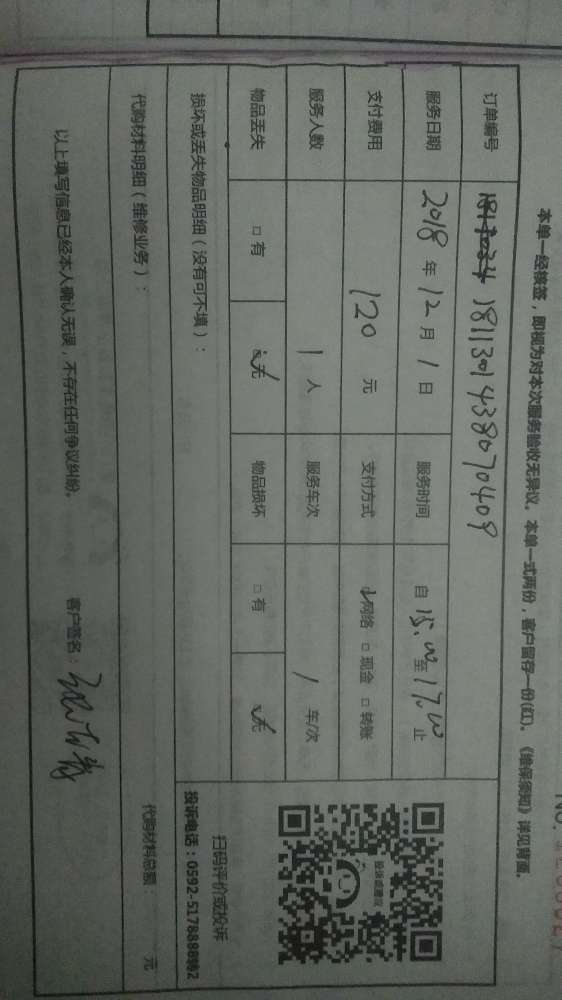 本单一经核签，即视为对本次服务验收无异议。本单一式两份，客户留存一份(红)。《维保须知》详见背面。
订单编号 1811301438070409
服务日期 2018 年 12 月 1 日 服务时间 自 15:00 至 17:00 止
支付费用 120 元 支付方式 ☑网络 □ 现金 □ 转账
服务人数 1 人 服务车次 1 车/次
物品丢失 □ 有 ☑无 物品损坏 □ 有 ☑无
损坏或丢失物品明细（没有可不填）：
扫码评价或投诉
投诉电话：0592-5178888转2
代购材料明细（维修业务）： 代购材料总额： 元
以上填写信息已经本人确认无误，不存在任何争议纠纷。 客户签名：